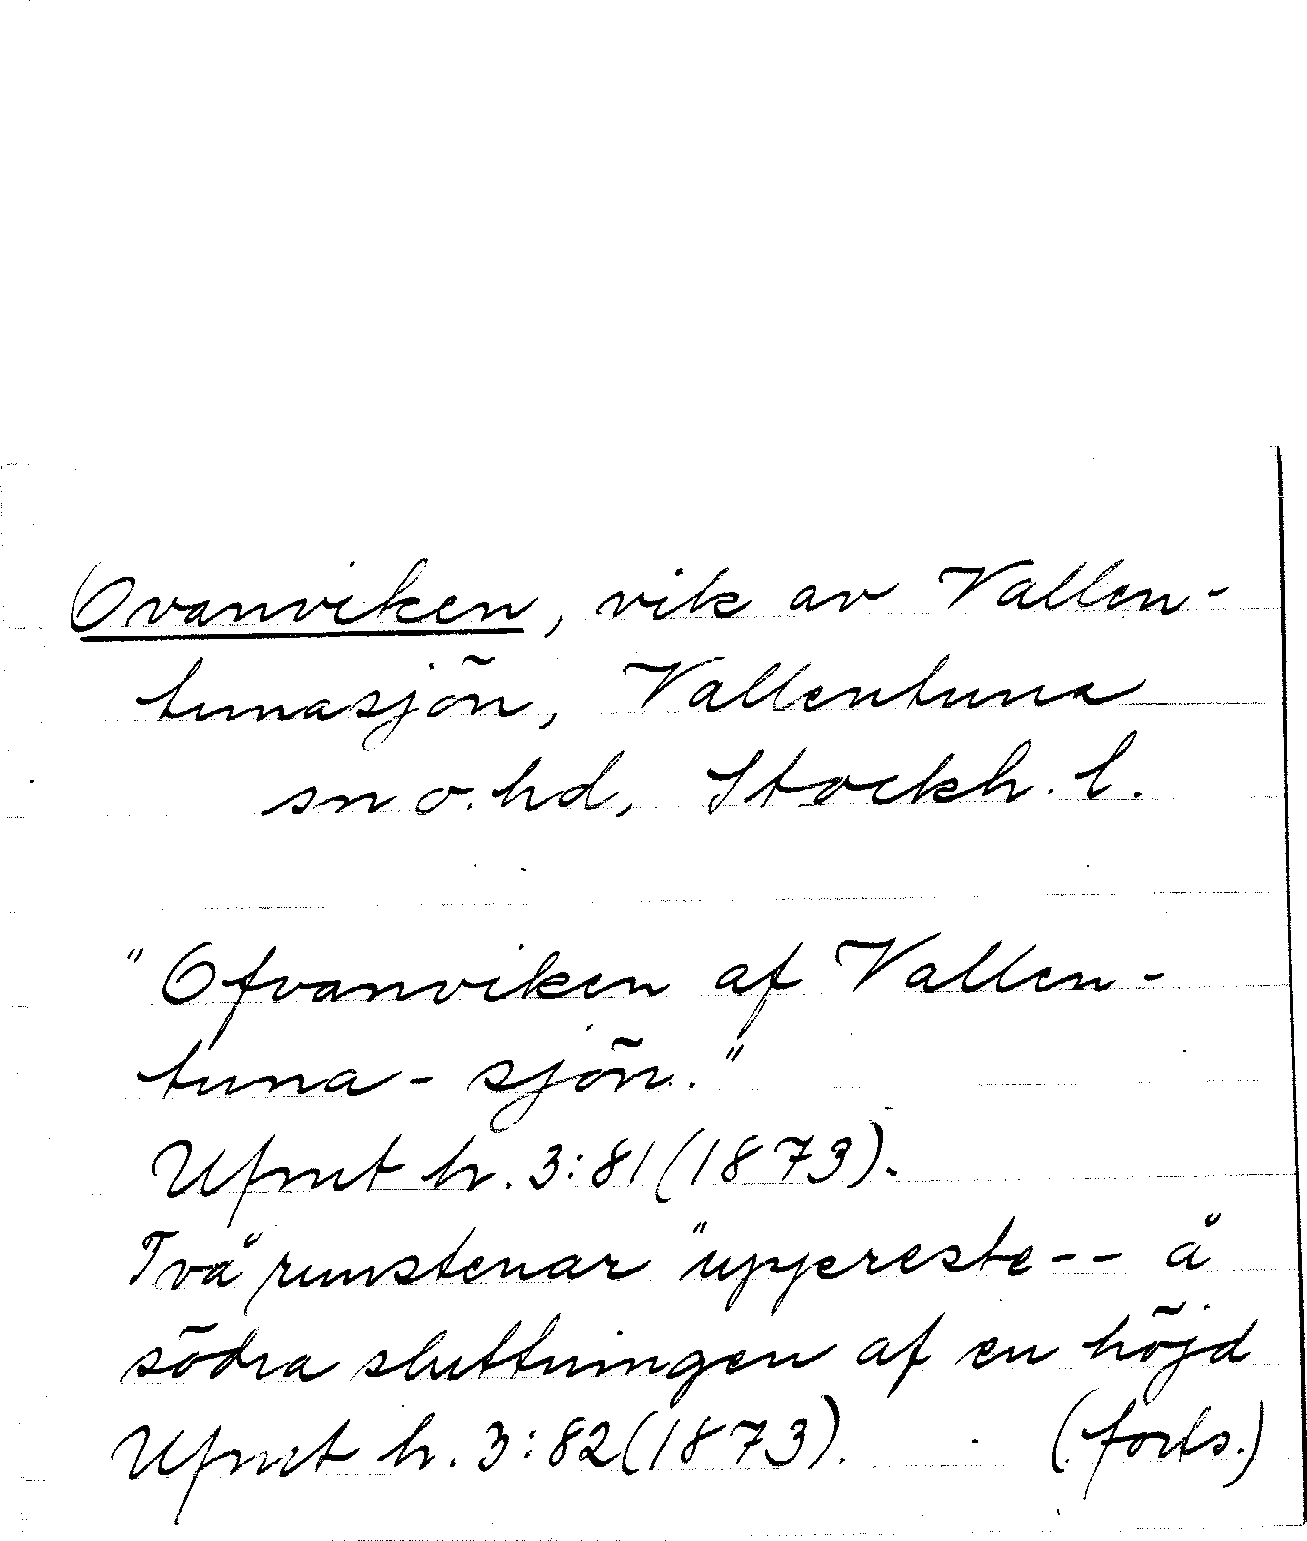 Ovanviken, vik av Vallen-
tunasjön, Vallentuna
sn o. hd, Stockh. l.
"Ofvanviken af Vallen-
tuna-sjön."
Ufmt h. 3:81(1873).
Två runstenar "uppreste-- å
södra sluttningen af en höjd
Ufmt h. 3:82(1873). (forts.)